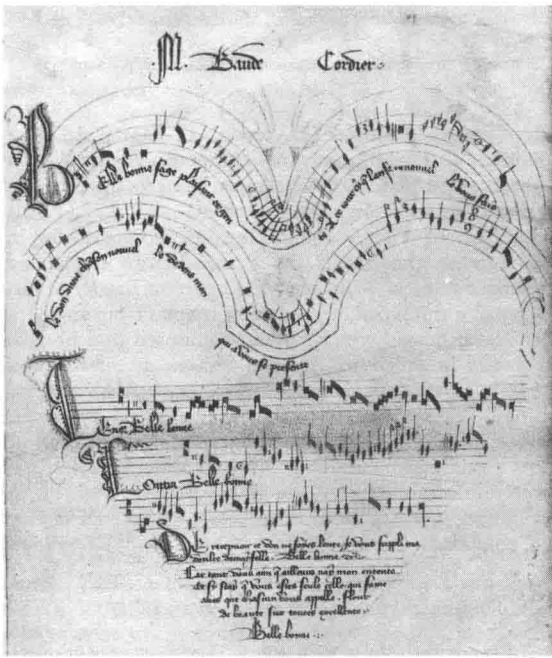 M. Baude Cordier.
Belle bonne sage plaisant et gen
A ce jour cy que l'an se renouvel
Vous fais
le don dune chanson nouvel
le dedens mon
qui a vous se presente
Tenor Belle bonne
Contra Belle bonne
De recepvoir ce don ne soyes lente, Je vous suppli ma
doulce damoyselle. Belle bonne
Car tant vous aim qu ailleurs nay mon entente
Et si scay que vous estes seule celle qui fame
aves que chascun vous appelle. Flour
de beaute sur toutes excellente.
Belle bonne.